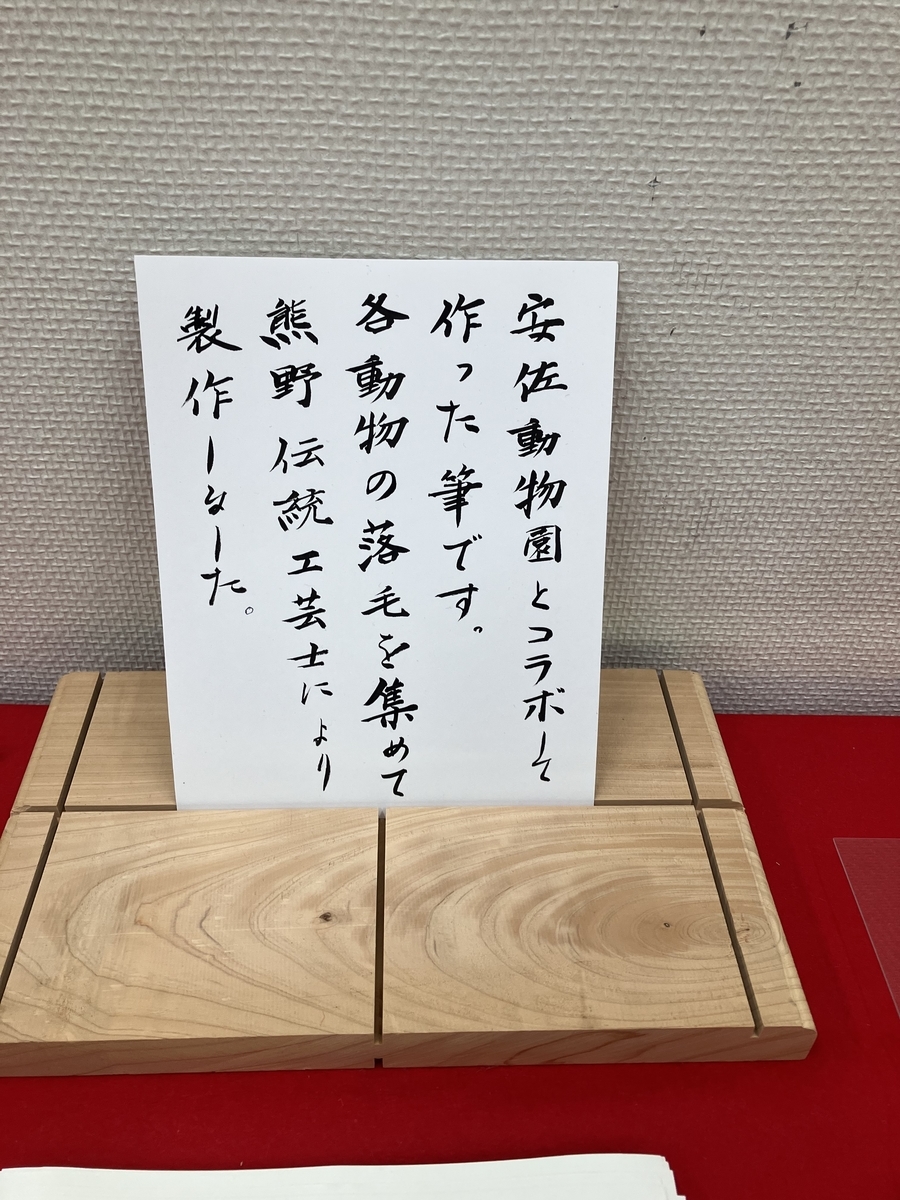 安佐動物園とコラボして
作った筆です。
各動物の落毛を集めて
熊野伝統工芸士により
製作しました。